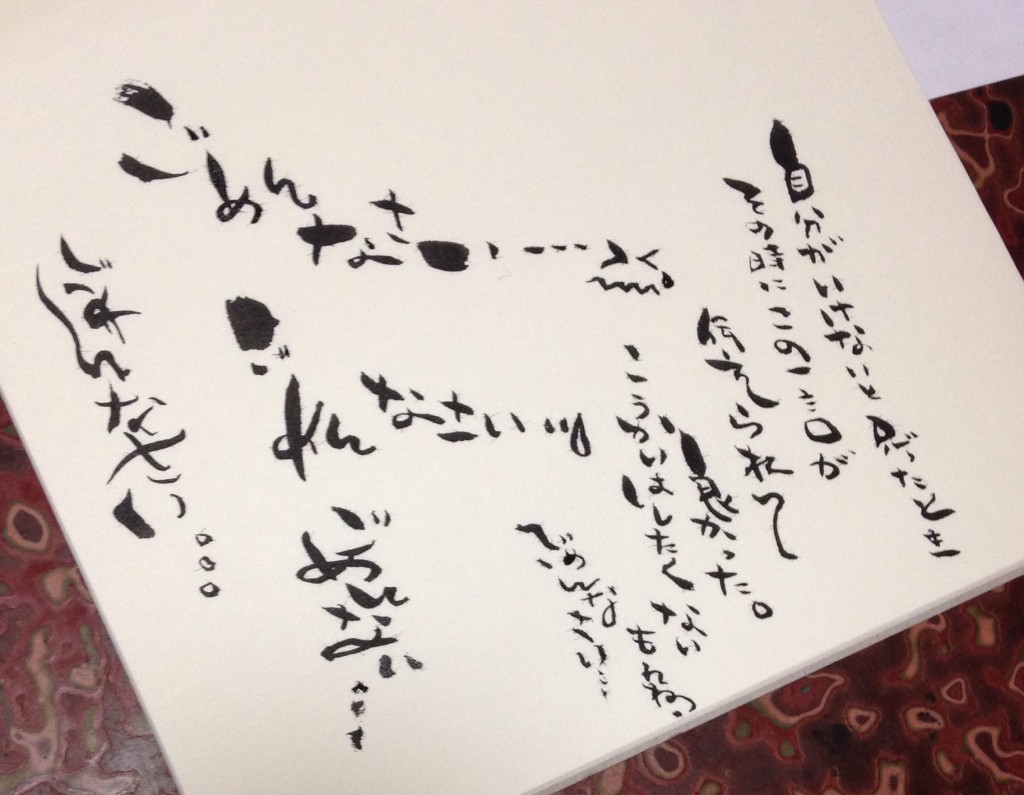 自分がいけないと思ったとき
その時にこの一言が
伝えられて
良かった。
こうかいはしたくない
もんね
ごめんなさい…
ごめんなさい
ごめんなさい
ごめんなさい…
ごめんなさい。。。